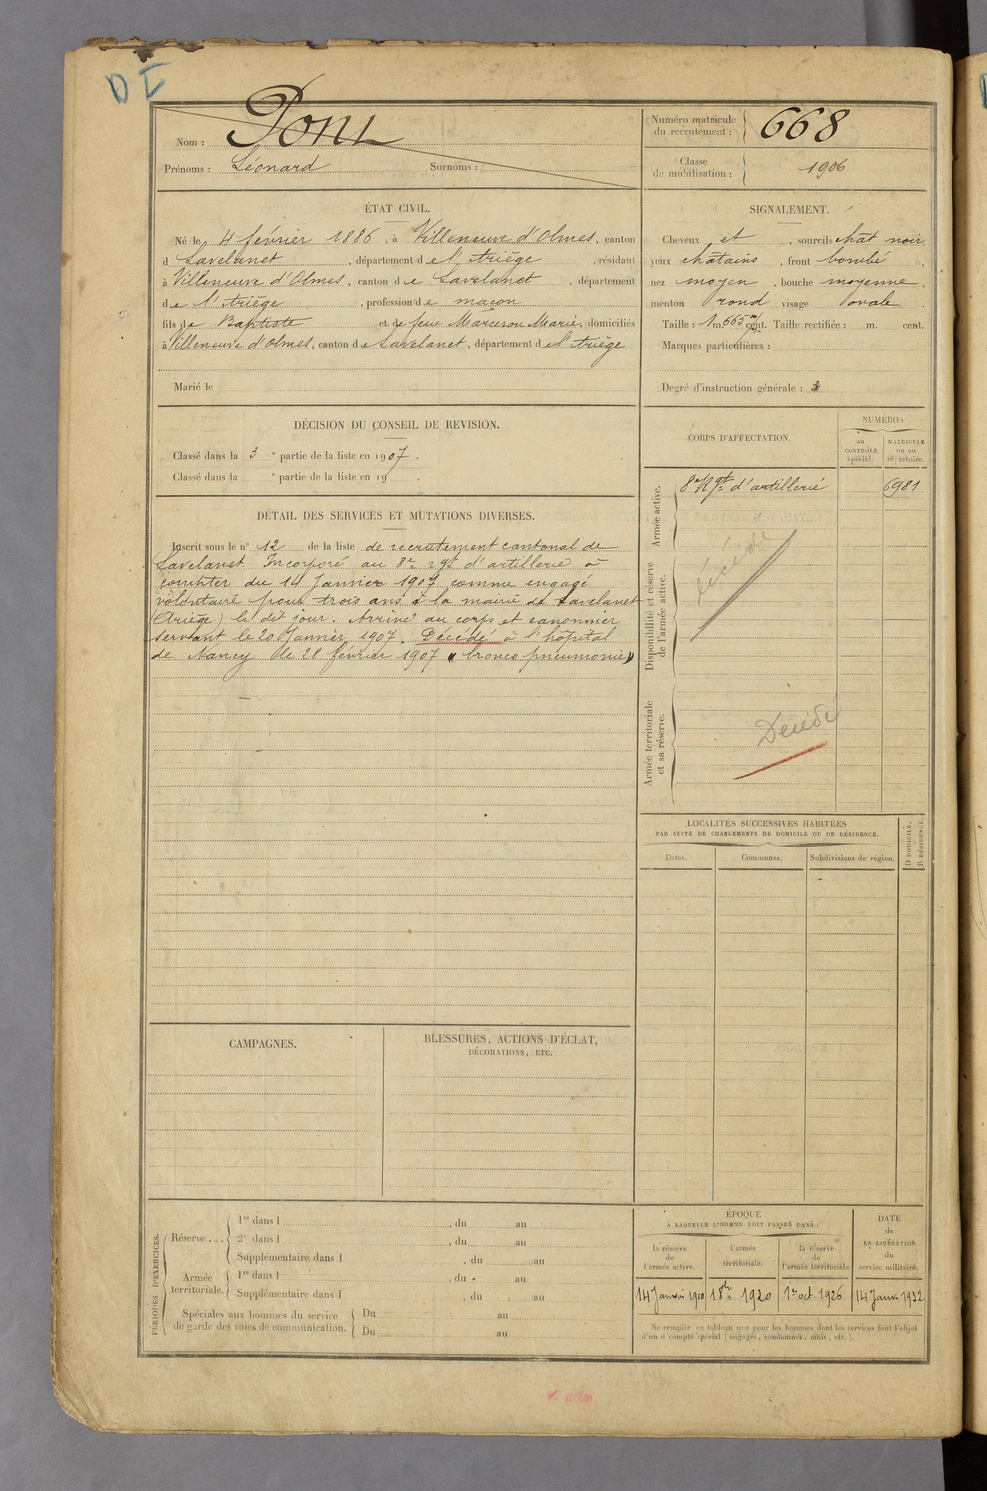 D I
Nom : Pons
Prénoms : Léonard Surnoms :
Numéro matricule du recrutement : 668
Classe de mobilisation : 1906
ÉTAT CIVIL.
Né le 4 février 1886, à Villeneuve d'Olmes, canton
d Lavelanet, département de l'Ariège, résidant
à Villeneuve d'Olmes, canton de Lavelanet, département
de l'Ariège, profession de maçon
fils de Baptiste et de feue Marcerou Marie, domiciliés
à Villeneuve d'Olmes, canton de Lavelanet, département de l'Ariège
Marié le
SIGNALEMENT.
Cheveux et, sourcils chat noir,
yeux châtains, front bombé,
nez moyen, bouche moyenne,
menton rond visage ovale
Taille : 1 m. 665 m/m cent. Taille rectifiée : m. cent.
Marques particulières :
Degré d'instruction générale : 3
DÉCISION DU CONSEIL DE REVISION.
Classé dans la 3e partie de la liste en 1907.
Classé dans la e partie de la liste en 19 .
CORPS D'AFFECTATION.
NUMÉROS
au CONTRÔLE spécial.
MATRICULE ou au répertoire.
Armée active.
8e Rgt d'artillerie 6981
Disponibilité et réserve de l'armée active.
décédé
Armée territoriale et sa réserve.
Décédé
DÉTAIL DES SERVICES ET MUTATIONS DIVERSES.
Inscrit sous le n° 12 de la liste de recrutement cantonal de
Lavelanet. Incorporé au 8e rgt d'artillerie à
compter du 14 Janvier 1907 comme engagé
volontaire pour trois ans à la mairie de Lavelanet
(Ariège) le dit jour. Arrivé au corps et canonnier
servant le 20 Janvier 1907. Décédé à l'hôpital
de Nancy le 28 février 1907 « bronco pneumonie »
LOCALITÉS SUCCESSIVES HABITÉES
PAR SUITE DE CHANGEMENTS DE DOMICILE OU DE RÉSIDENCE.
Dates. Communes. Subdivisions de région.
D DOMICILE.
R RÉSIDENCE.
CAMPAGNES.
BLESSURES, ACTIONS D'ÉCLAT,
DÉCORATIONS, ETC.
PÉRIODES D'EXERCICES.
Réserve...
1re dans l , du au
2e dans l , du au
Supplémentaire dans l , du au
Armée territoriale.
1re dans l , du au
Supplémentaire dans l , du au
Spéciales aux hommes du service
de garde des voies de communication.
Du au
Du au
ÉPOQUE
A LAQUELLE L'HOMME DOIT PASSER DANS :
la réserve de l'armée active.
l'armée territoriale.
la réserve de l'armée territoriale
DATE de LA LIBÉRATION du service militaire.
14 Janvier 1910 1er 8bre 1920 1er oct. 1926 14 Janv. 1932
Ne remplir ce tableau que pour les hommes dont les services font l'objet
d'un d'compte spécial (engagés, condamnés, omis, etc.).